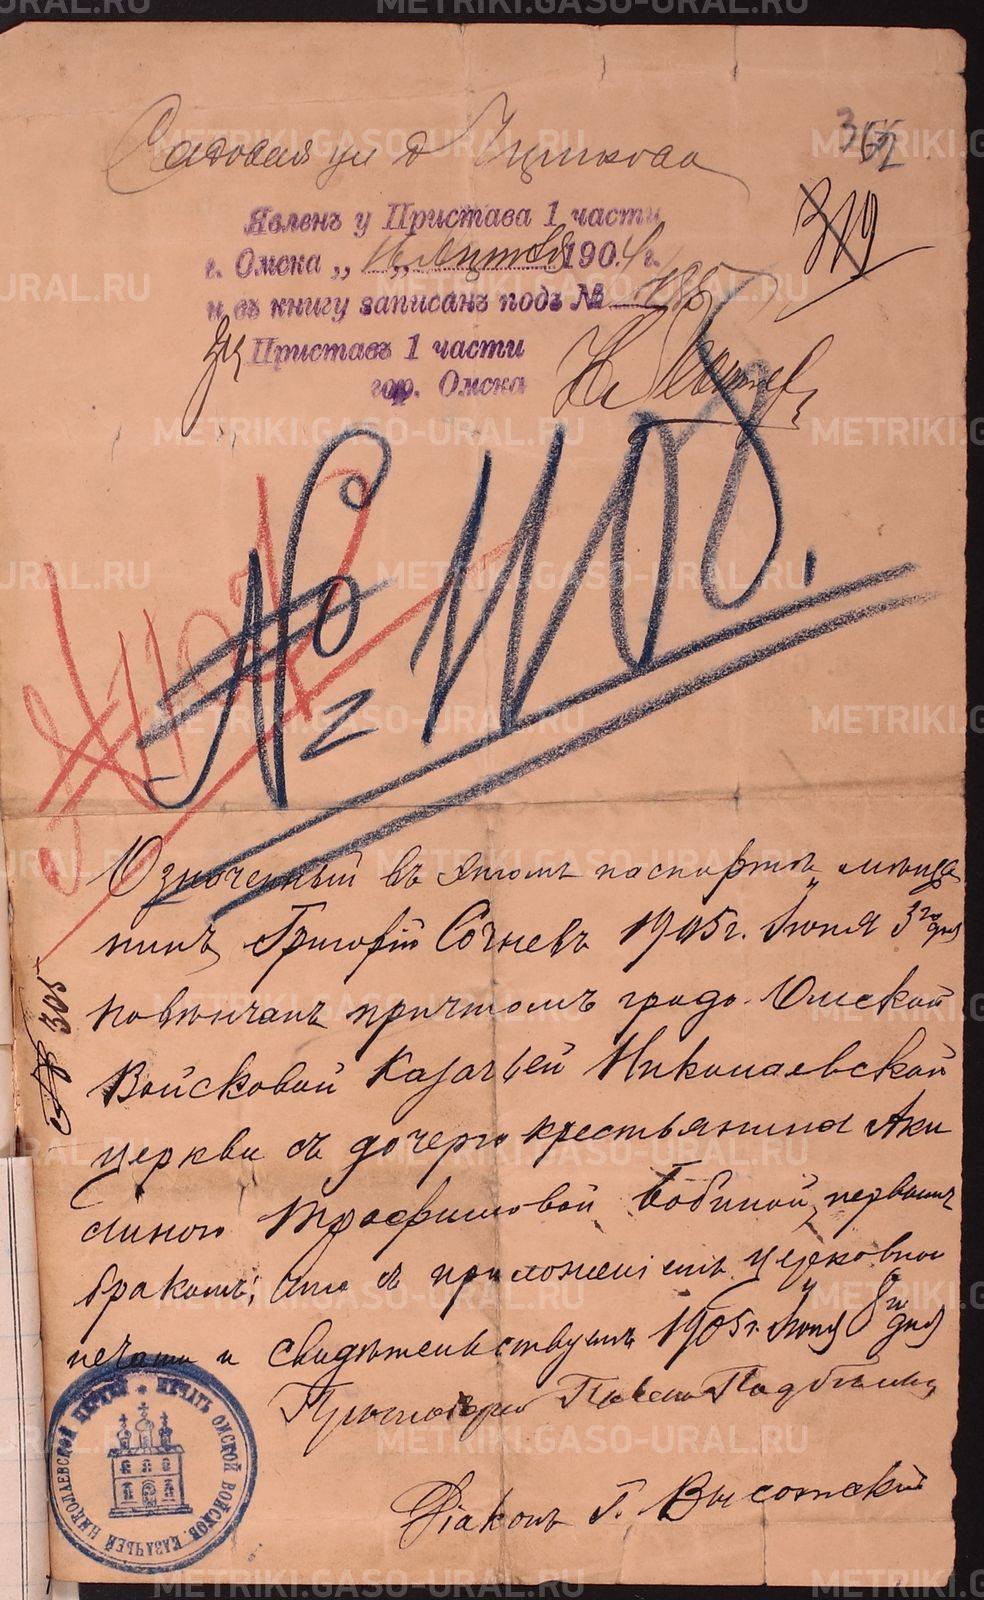 Садовая ул д
362
319
Явленъ у Пристава 1 части
г. Омска „ 1904 г.
и въ книгу записанъ подъ №
Приставъ 1 части
гор. Омска
№ 1108.
Означенный въ этомъ паспортѣ мѣща
нинъ Григорій Сочневъ 1905 г. Іюня 3го дня
повѣнчанъ причтомъ градо-Омской
Войсковой Казачьей Николаевской
церкви съ дочерью крестьянина Аки
линою Трофимовой Бобиной, первымъ
бракомъ; что съ приложеніемъ церковной
печати и свидѣтельствуемъ 1905 г. Іюня 8го дня
Протоіерей Павелъ
Діаконъ Г. Высотскій
305
ПЕЧАТЬ ОМСКОЙ ВОЙСКОВ. КАЗАЧЬЕЙ НИКОЛАЕВСКОЙ ЦЕРКВИ
METRIKI.GASO-URAL.RU